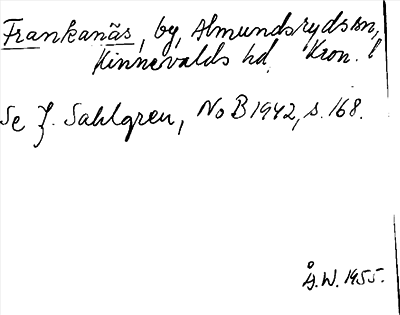 Frankanäs, by, Almundsryds sn,
Kinnevalds hd. Kron. l
Se J. Sahlgren, NoB 1942, s. 168.
Å.W. 1955.